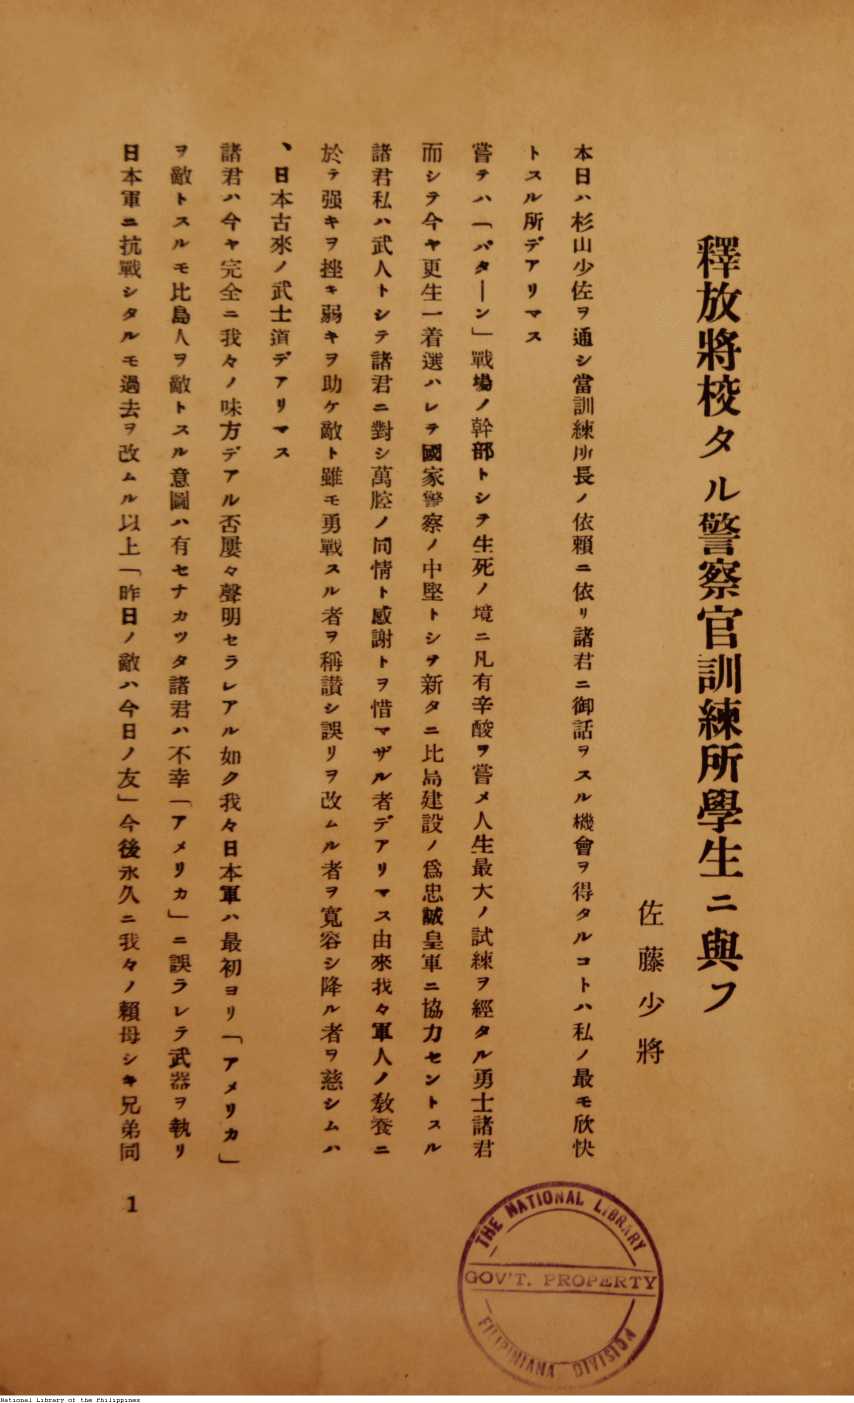 釋放將校タル警察官訓練所學生ニ與フ
佐藤少將
本日ハ杉山少佐ヲ通シ當訓練所長ノ依賴ニ依リ諸君ニ御話ヲスル機會ヲ得タルコトハ私ノ最モ欣快
トスル所デアリマス
嘗テハ「バターン」戰場ノ幹部トシテ生死ノ境ニ凡有辛酸ヲ嘗メ人生最大ノ試練ヲ經タル勇士諸君
而シテ今ヤ更生一着選ハレテ國家警察ノ中堅トシテ新タニ比島建設ノ爲忠誠皇軍ニ協力セントスル
諸君私ハ武人トシテ諸君ニ對シ萬腔ノ同情ト感謝トヲ惜マザル者デアリマス由來我々軍人ノ敎養ニ
於テ强キヲ挫キ弱キヲ助ケ敵ト雖モ勇戰スル者ヲ稱讃シ誤リヲ改ムル者ヲ寬容シ降ル者ヲ慈シムハ
、日本古來ノ武士道デアリマス
諸君ハ今ヤ完全ニ我々ノ味方デアル否屢々聲明セラレアル如ク我々日本軍ハ最初ヨリ「アメリカ」
ヲ敵トスルモ比島人ヲ敵トスル意圖ハ有セナカツタ諸君ハ不幸「アメリカ」ニ誤ラレテ武器ヲ執リ
日本軍ニ抗戰シタルモ過去ヲ改ムル以上「昨日ノ敵ハ今日ノ友」今後永久ニ我々ノ賴母シキ兄弟同
1
THE NATIONAL LIBRARY
GOV'T. PROPERTY
FILIPINIANA DIVISION
National Library of the Philippines